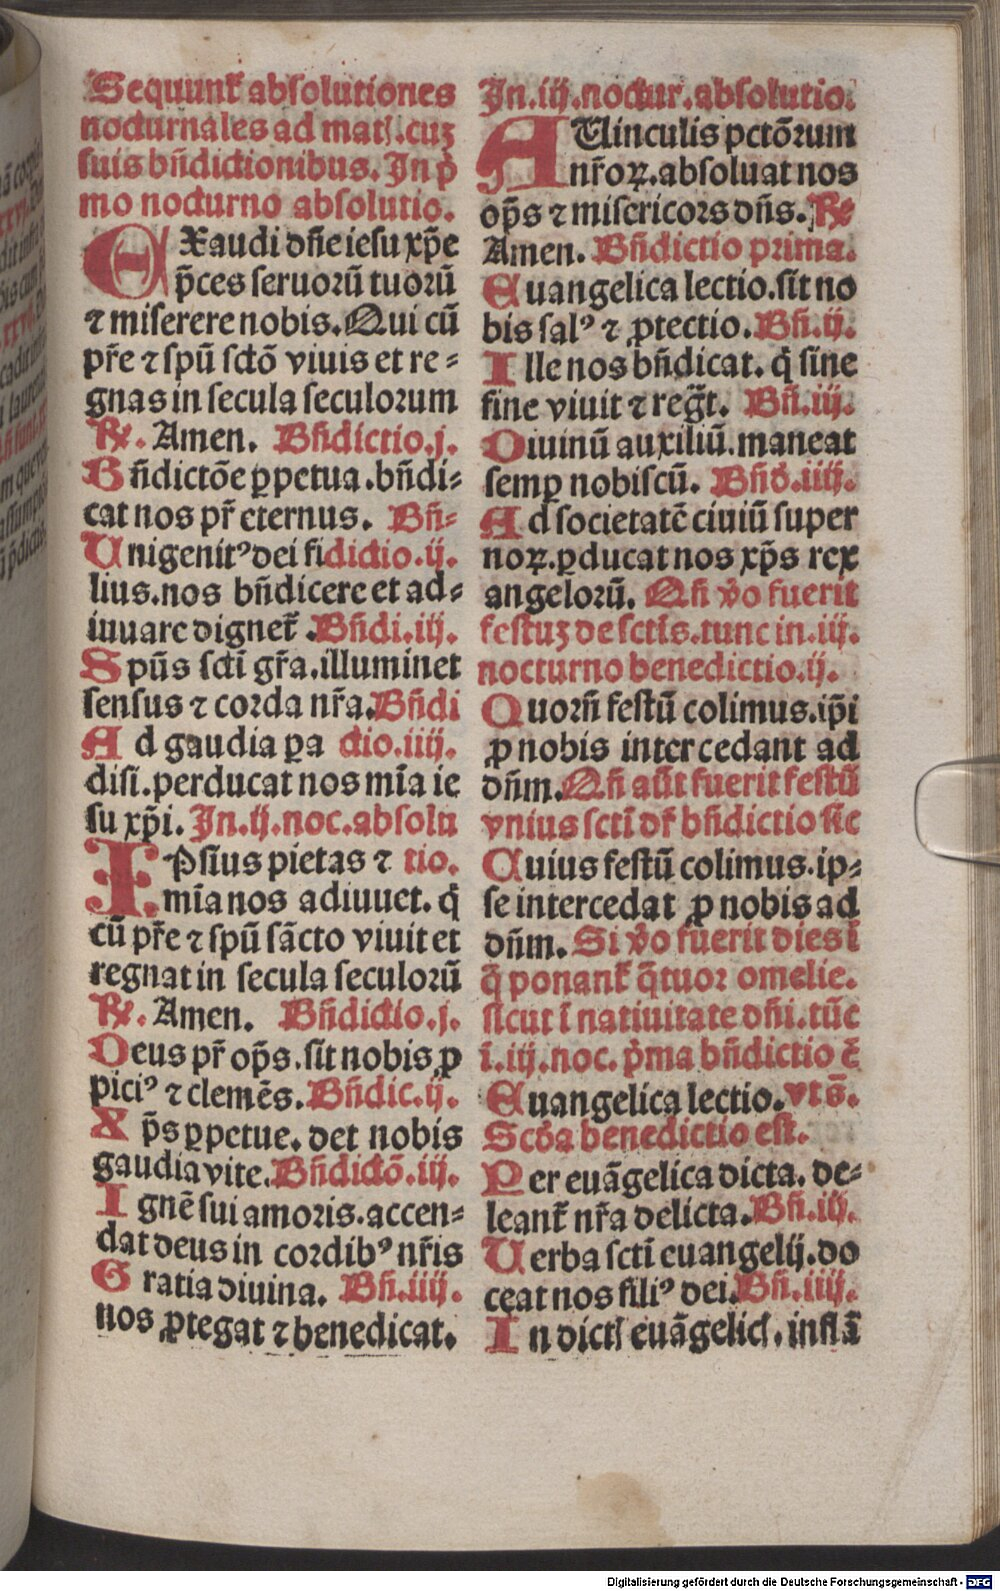 Sequunt̃ absolutiones
nocturnales ad mat᷒.cuʒ
suis bñdictionibus. In p̃
mo nocturno absolutio.
EXaudi dñe iesu xp̃e
p̃ces seruorũ tuorũ
⁊ miserere nobis. Qui cũ
pr̃e ⁊ spũ sctõ viuis et re⸗
gnas in secula seculorum
℟. Amen. Bñdictio.j.
Bñdictõe ꝑpetua.bñdi⸗
cat nos pr̃ eternus. Bñ⸗
Unigenitꝰ dei fi dictio.ij.
lius.nos bñdicere et ad⸗
iuuare dignet̃. Bñdi.iij.
Spũs sctĩ gr̃a.illuminet
sensus ⁊ corda nr̃a. Bñdi
Ad gaudia ꝑa ctio.iiij.
disi.perducat nos mĩa ie
su xp̃i. In.ij.noc.absolu
IPsius pietas ⁊ tio.
mĩa nos adiuuet. q̃
cũ pr̃e ⁊ spũ sãcto viuit et
regnat in secula seculorũ
℟. Amen. Bñdictio.j.
Deus pr̃ op̃s.sit nobis ꝓ
piciꝰ ⁊ clemẽs. Bñdic.ij.
Xp̃s ꝑpetue. det nobis
gaudia vite. Bñdictõ.iij.
Ignẽ sui amoris.accen⸗
dat deus in cordibꝰ nr̃is
Gratia diuina. Bñ.iiij.
nos ꝓtegat ⁊ benedicat.
In.iij.noctur.absolutio.
A Uinculis pctõrum
nr̃oꝝ.absoluat nos
op̃s ⁊ misericors dñs. ℟
Amen. Bñdictio prima.
Euangelica lectio.sit no
bis salꝰ ⁊ ꝓtectio. Bñ.ij.
Ille nos bñdicat. q̃ sine
fine viuit ⁊ reg̃t. Bñ.iij.
Diuinũ auxiliũ.maneat
semꝑ nobiscũ. Bñd̃.iiij.
Ad societatẽ ciuiũ super
noꝝ.ꝑducat nos xp̃s rex
angelorũ. Qñ ṽo fuerit
festuʒ de sctĩs.tunc in.iij.
nocturno benedictio.ij.
Quorũ festũ colimus.ip̃i
ꝓ nobis intercedant ad
dñm. Qñ aũt fuerit festũ
vnius sctĩ dr̃ bñdictio sic
Cuius festũ colimus.ip⸗
se intercedat ꝓ nobis ad
dñm. Si ṽo fuerit dies ĩ
q̃ ponant̃ q̃tuor omelie.
sicut ĩ natiuitate dñi.tũc
ĩ.iij.noc. p̃ma bñdictio ẽ
Euangelica lectio. vt s̃.
Scd̃a benedictio est.
Per euãgelica dicta. de⸗
leant̃ nr̃a delicta. Bñ.iij.
Uerba sctĩ euangelij.do
ceat nos filiꝰ dei. Bñ.iiij.
In dict᷒ euãgelic᷒.inflã
Digitalisierung gefördert durch die Deutsche Forschungsgemeinschaft - DFG